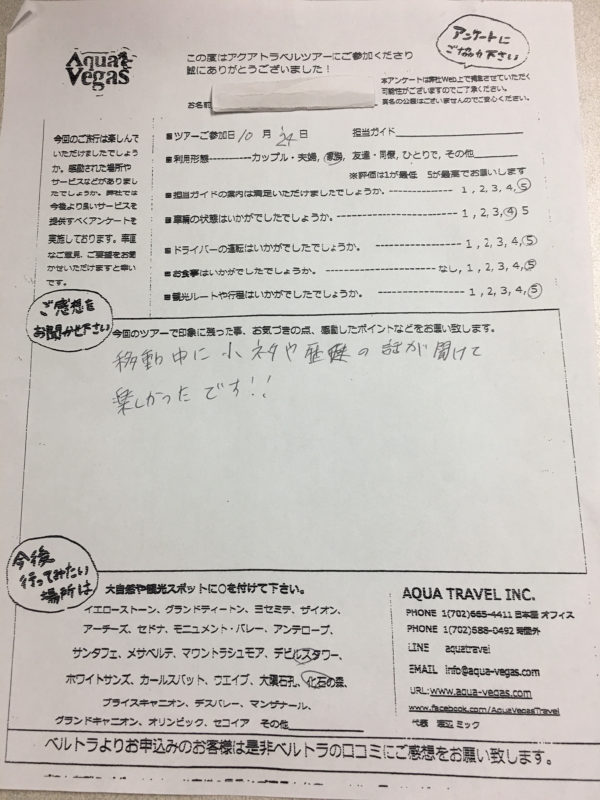 Aqua Vegas
この度はアクアトラベルツアーにご参加くださり
誠にありがとうございました！
アンケートに
ご協力下さい
本アンケートは弊社Web上で掲載させていただく
可能性がございますのでご了承ください。
実名の公表はございませんのでご安心ください。
お名前
今回のご旅行は楽しんで
いただけましたでしょう
か。感動された場所や
サービスなどがありまし
たでしょうか。弊社では
今後より良いサービスを
提供すべくアンケートを
実施しております。率直
なご意見、ご要望をお聞
かせいただけますと幸い
です。
■ツアーご参加日 10 月 24 日 担当ガイド
■利用形態-----------カップル・夫婦, 家族, 友達・同僚, ひとりで, その他
※評価は1が最低 5が最高でお願いします
■担当ガイドの案内は満足いただけましたでしょうか。-------------- 1 , 2, 3, 4, 5
■車輌の状態はいかがでしたでしょうか。------------------------ 1 , 2, 3, 4, 5
■ドライバーの運転はいかがでしたでしょうか。------------------ 1 , 2, 3, 4, 5
■お食事はいかがでしたでしょうか。------------------なし, 1 , 2, 3, 4, 5
■観光ルートや行程はいかがでしたでしょうか。------------------ 1, 2, 3, 4, 5
ご感想を
お聞かせ下さい
今回のツアーで印象に残った事、お気づきの点、感動したポイントなどをお願い致します。
移動中に小ネタや歴史の話が聞けて
楽しかったです!!
今後
行ってみたい
場所は
大自然や観光スポットに○を付けて下さい。
イエローストーン、グランドティートン、ヨセミテ、ザイオン、
アーチーズ、セドナ、モニュメント・バレー、アンテロープ、
サンタフェ、メサベルテ、マウントラシュモア、デビルズタワー、
ホワイトサンズ、カールスバット、ウエイブ、大隕石孔、化石の森、
ブライスキャニオン、デスバレー、マンザナール、
グランドキャニオン、オリンピック、セコイア その他
AQUA TRAVEL INC.
PHONE 1(702)665-4411 日本語 オフィス
PHONE 1(702)688-0492 時間外
LINE aquatravel
EMAIL info@aqua-vegas.com
URL: www.aqua-vegas.com
www.facebook.com/AquaVegasTravel
代表 渡辺 ミック
ベルトラよりお申込みのお客様は是非ベルトラの口コミにご感想をお願い致します。